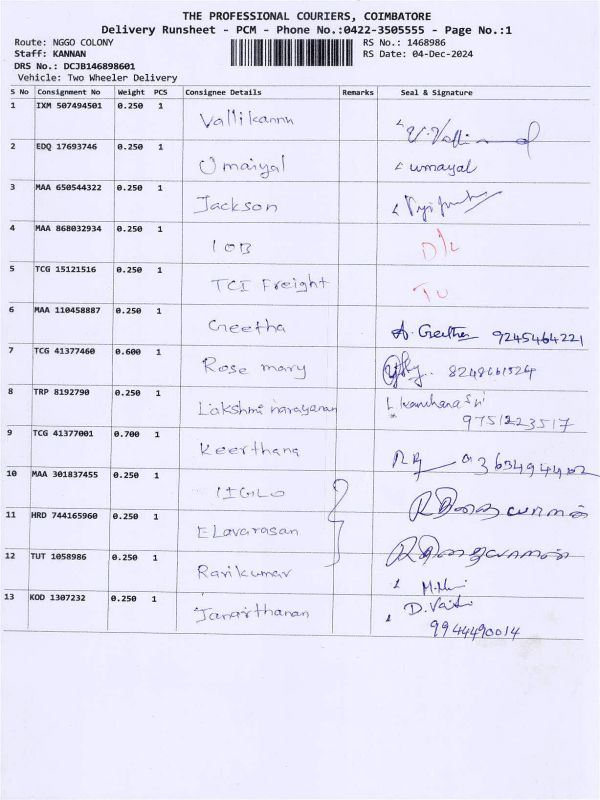 THE PROFESSIONAL COURIERS, COIMBATORE
Delivery Runsheet - PCM - Phone No.:0422-3505555 - Page No.:1
Route: NGGO COLONY RS No.: 1468986
Staff: KANNAN RS Date: 04-Dec-2024
DRS No.: DCJB146898601
Vehicle: Two Wheeler Delivery
S No Consignment No Weight PCS Consignee Details Remarks Seal & Signature
1 IXM 507494501 0.250 1 Vallikannu
2 EDQ 17693746 0.250 1 Umaiyal umayal
3 MAA 650544322 0.250 1 Jackson
4 MAA 868032934 0.250 1 IOB D/L
5 TCG 15121516 0.250 1 TCI Freight
6 MAA 110458887 0.250 1 Geetha A. Geetha 9245464221
7 TCG 41377460 0.600 1 Rose mary
8 TRP 8192790 0.250 1 Lakshmi narayanan L Kanchana Sri
9751223517
9 TCG 41377001 0.700 1 Keerthana
10 MAA 301837455 0.250 1
11 HRD 744165960 0.250 1 Elavarasan
12 TUT 1058986 0.250 1 Ravikumar
13 KOD 1307232 0.250 1 Janarthanan
9944490014